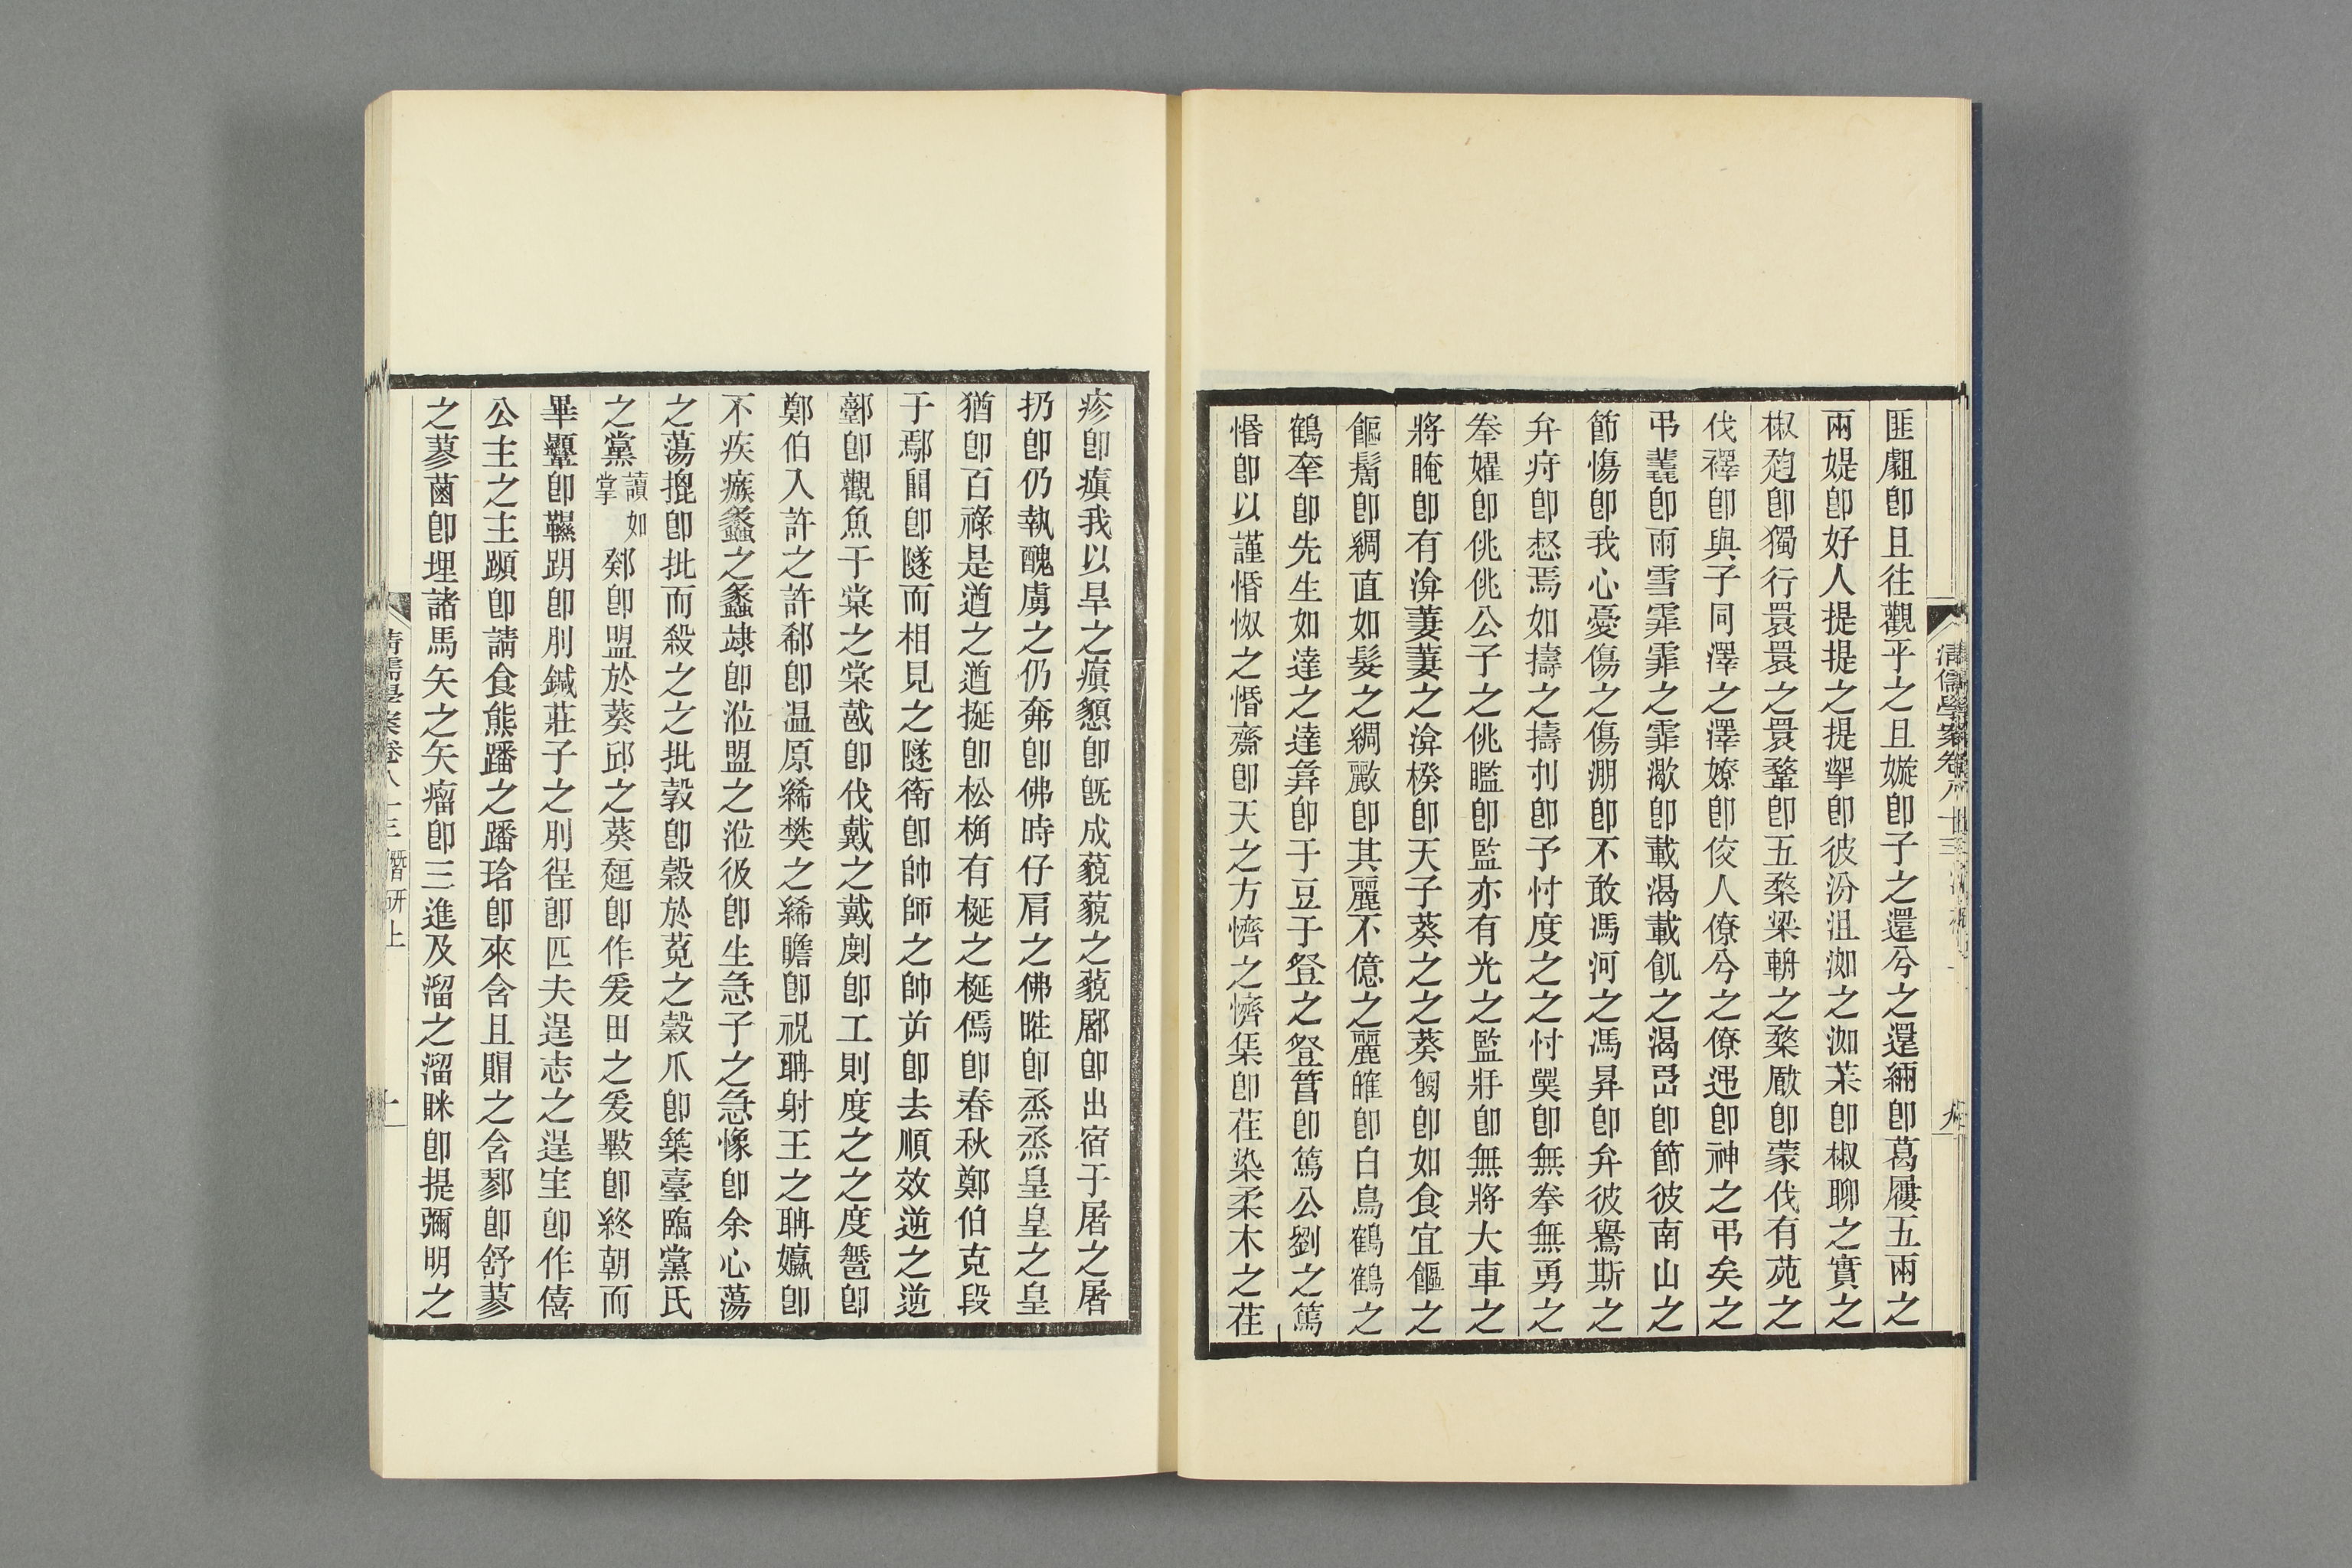 匪䣯卽且往觀乎之且嫙卽子之還兮之還緉卽葛屨五兩之
兩媞卽好人提提之提㨖卽彼汾沮洳之洳茮卽椒聊之實之
椒趋卽獨行睘睘之睘鞪卽五楘梁輈之楘瞂卽蒙伐有苑之
伐襗卽與子同澤之澤嫽卽佼人僚兮之僚𨑩卽神之弔矣之
弔䨘卽雨雪霏霏之霏㵣卽載渴載飢之渴岊卽節彼南山之
節慯卽我心憂傷之傷淜卽不敢馮河之馮昇卽弁彼鸒斯之
弁疛卽惄焉如擣之擣刌卽予忖度之之忖㢲卽無拳無勇之
拳嬥卽佻佻公子之佻㬡卽監亦有光之監㸛卽無將大車之
將晻卽有渰萋萋之渰楑卽天子葵之之葵𩚬卽如食宜饇之
饇鬋卽綢直如髮之綢䴡卽其麗不億之麗皠卽白鳥鶴鶴之
鶴羍卽先生如達之達彛卽于豆于豋之豋筥卽篤公劉之篤
惛卽以謹惽怓之惽齌卽天之方懠之懠集卽荏染柔木之荏
疹卽瘨我以旱之瘨懇卽旣成藐藐之藐鄏卽出宿于屠之屠
扔卽仍執醜虜之仍奟卽佛時仔肩之佛暀卽烝烝皇皇之皇
猶卽百祿是遒之遒挻卽松桷有梴之梴傿卽春秋鄭伯克段
于鄢䦱卽隧而相見之隧衛卽帥師之帥𠫓卽去順效逆之逆
鄿卽觀魚于棠之棠𢧢卽伐戴之戴剫卽工則度之之度𨟍卽
鄭伯入許之許郗卽温原絺樊之絺瞻卽祝聃射王之聃嬴卽
不疾瘯蠡之蠡竦卽涖盟之涖彶卽生急子之急惕卽余心蕩
之蕩㨽卽批而殺之之批㝅卽穀於菟之穀爪卽築臺臨黨氏
之黨讀如掌鄈卽盟於葵邱之葵趄卽作爰田之爰𣪠卽終朝而
畢䡻卽鞿跀卽刖鍼莊子之刖徎卽匹夫逞志之逞宔卽作僖
公主之主顊卽請食熊蹯之蹯琀卽來含且賵之含鄝卽舒蓼
之蓼薶卽埋諸馬矢之矢瘤卽三進及溜之溜眯卽提彌明之